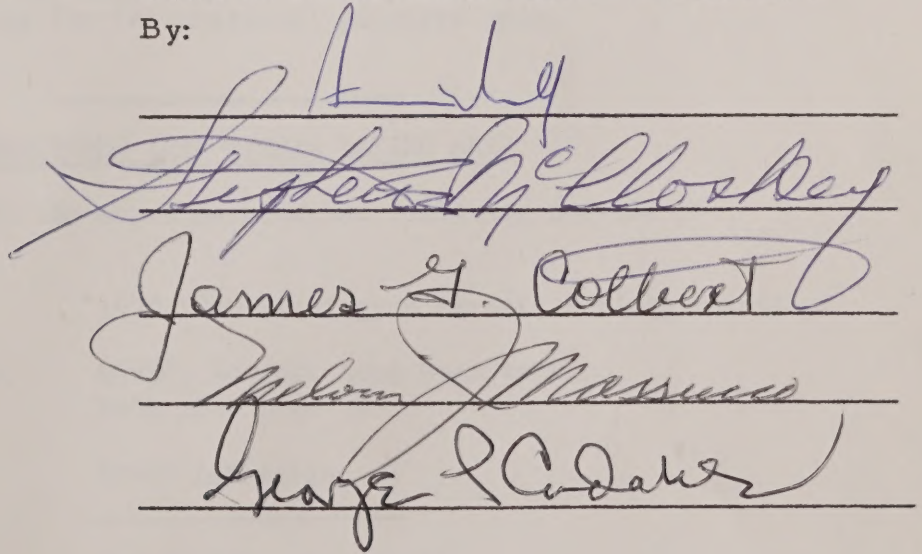 By:
Stephen McCloskey
James G. Colbert
Melvin J. Massucco
George P. Condakes